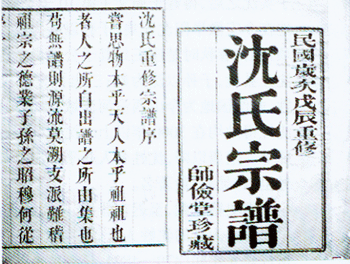 民國歲次戊辰重修
沈氏宗譜
師儉堂珍藏
沈氏重修宗譜序
嘗思物本乎天人本乎祖祖也
者人之所自出譜之所由集也
苟無譜則源流莫溯支派難稽
祖宗之德業子孫之昭穆何從